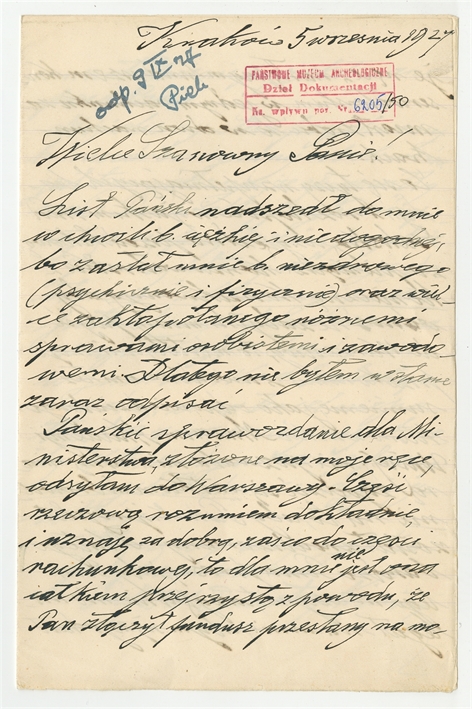 Kraków 5 września 1927
odp. 9 IX 27
Piek
PAŃSTWOWE MUZEUM ARCHEOLOGICZNE
Dział Dokumentacji
Ks. wpływu poz. Nr. 6205/50
Wielce Szanowny Panie!
List Pański nadszedł do mnie
w chwili b. ciężkiej i niedogodnej,
bo zastał mnie b. niezdrowego
(psychicznie i fizycznie) oraz wiel-
ce zakłopotanego różnemi
sprawami osobistemi i zawodo-
wemi. Dlatego nie byłem w stanie
zaraz odpisać
Pańskie sprawozdanie dla Mi-
nisterstwa, złożone na moje ręce,
odesłałem do Warszawy. Część
rzeczową rozumiem dokładnie
i uznaję za dobrą, zaś co do części
rachunkowej, to dla mnie nie jest ona
całkiem przejrzystą z powodu, że
Pan złączył fundusz przesłany na mo-